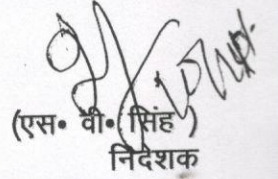 (एस० वी० सिंह )
निदेशक